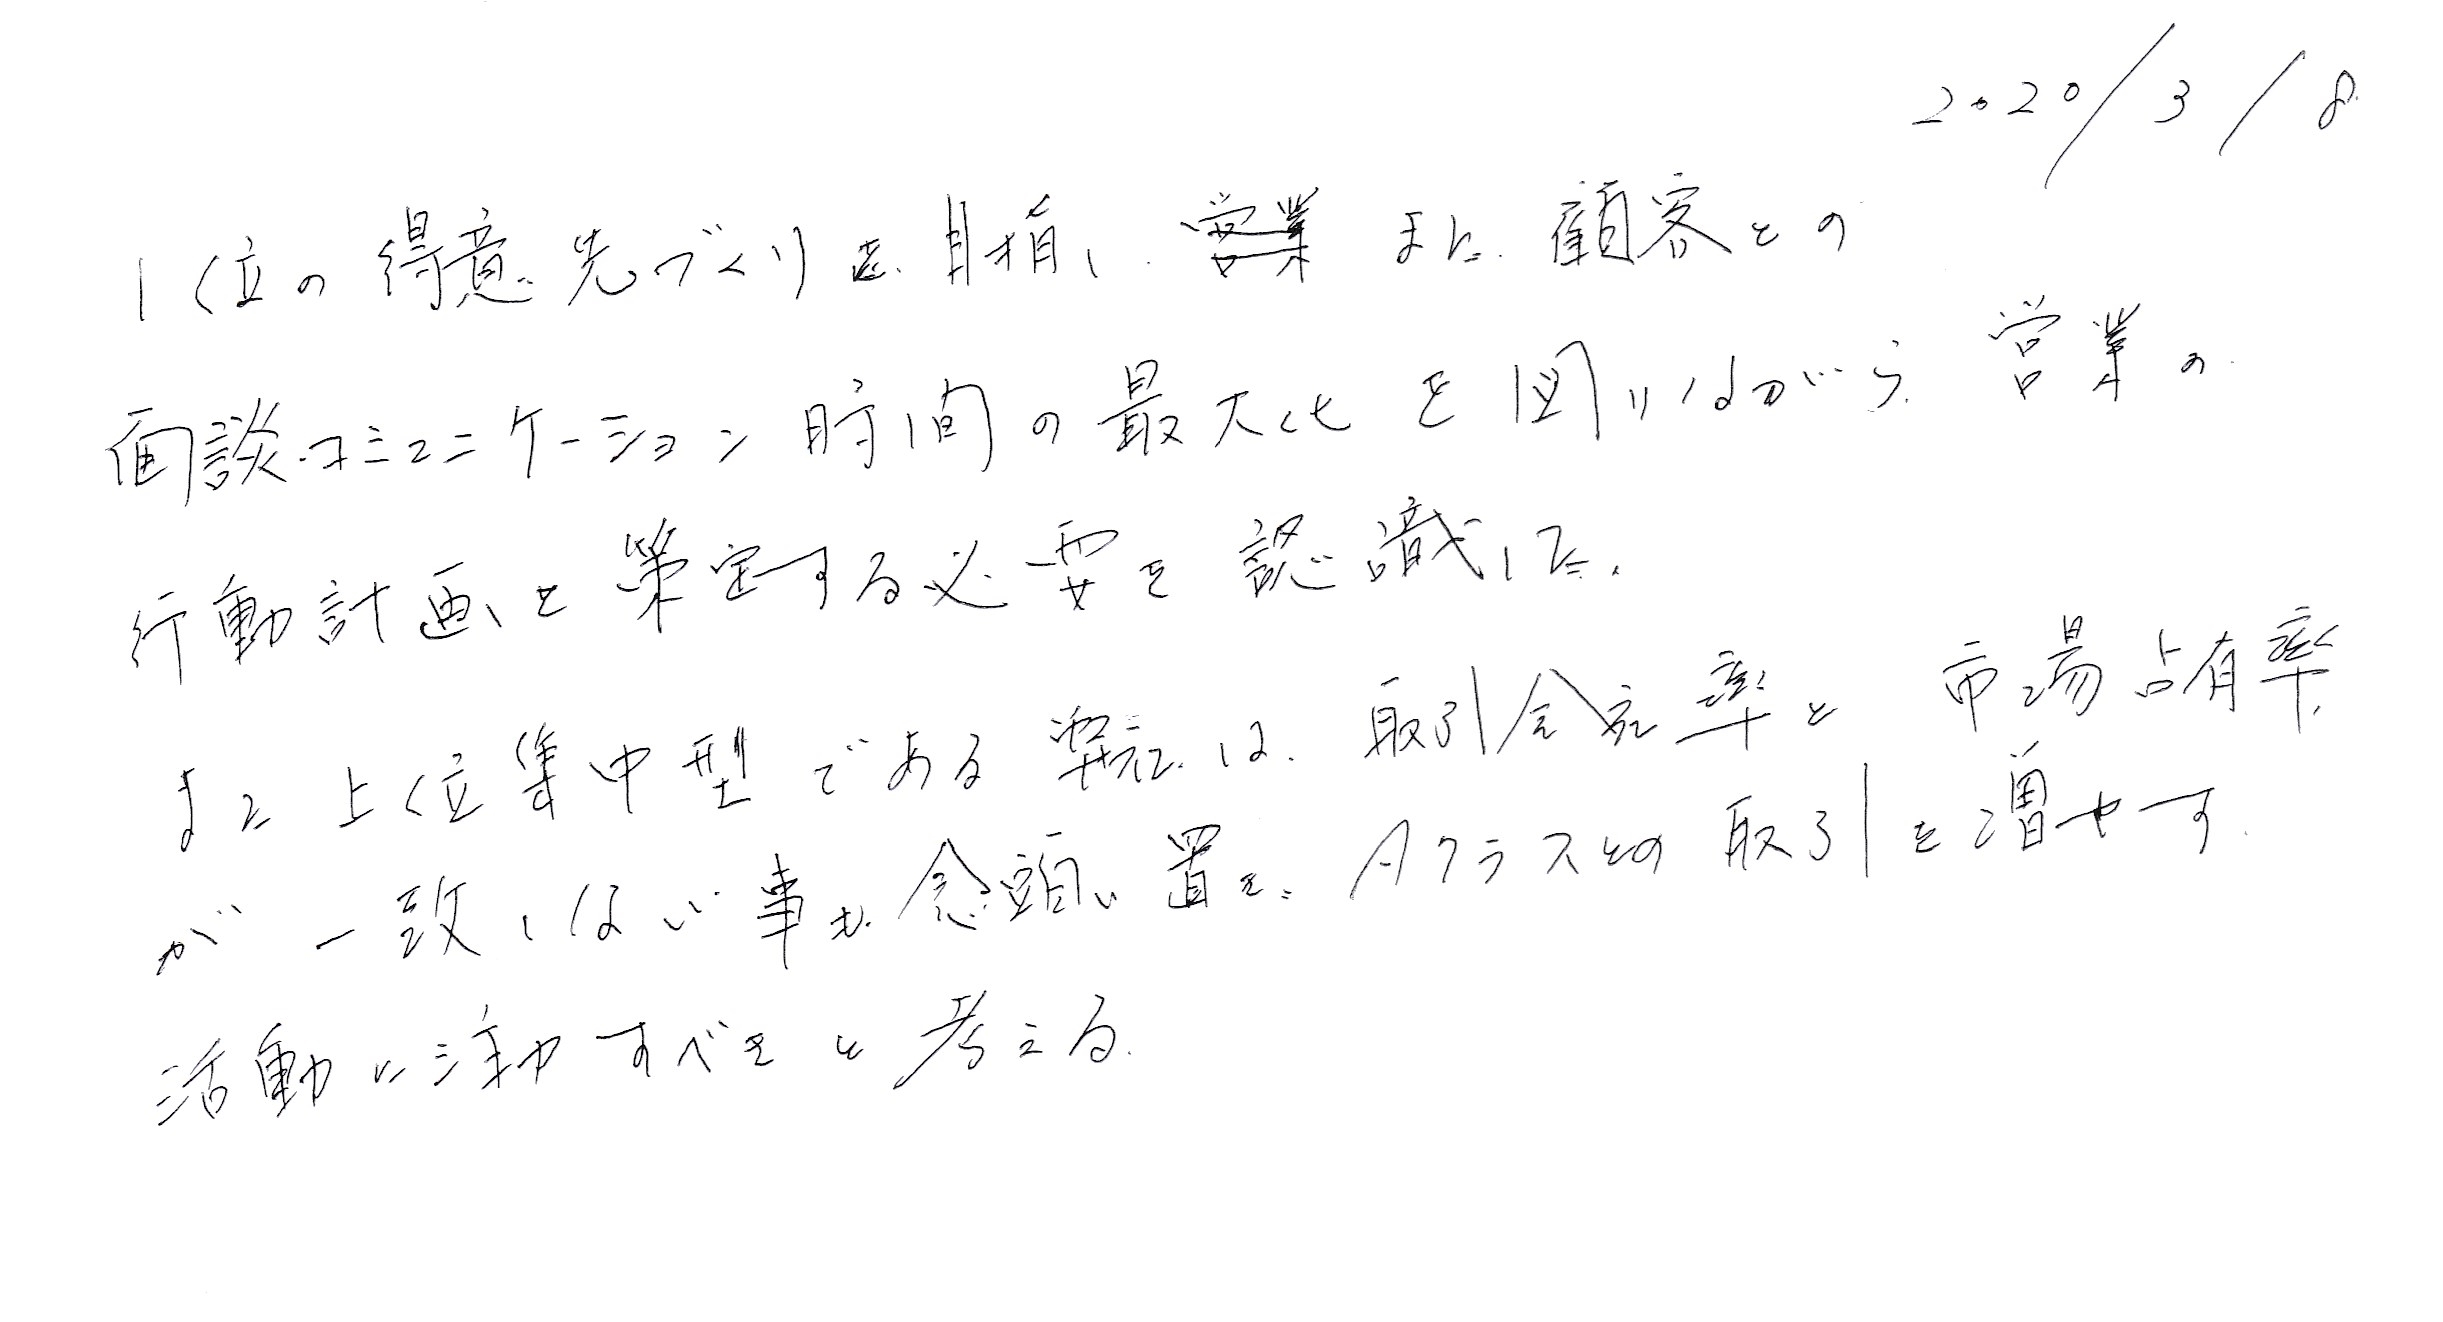 2020/3/8
1位の得意先づくりを目指し、営業 また、顧客との
面談・コミュニケーション時間の最大化を図りながら、営業の
行動計画を策定する必要を認識した。
また上位集中型である は、取引 率と市場占有率
が一致しない事も、念頭に置き、Aクラスとの取引を増やす
活動に注力すべきと考える。